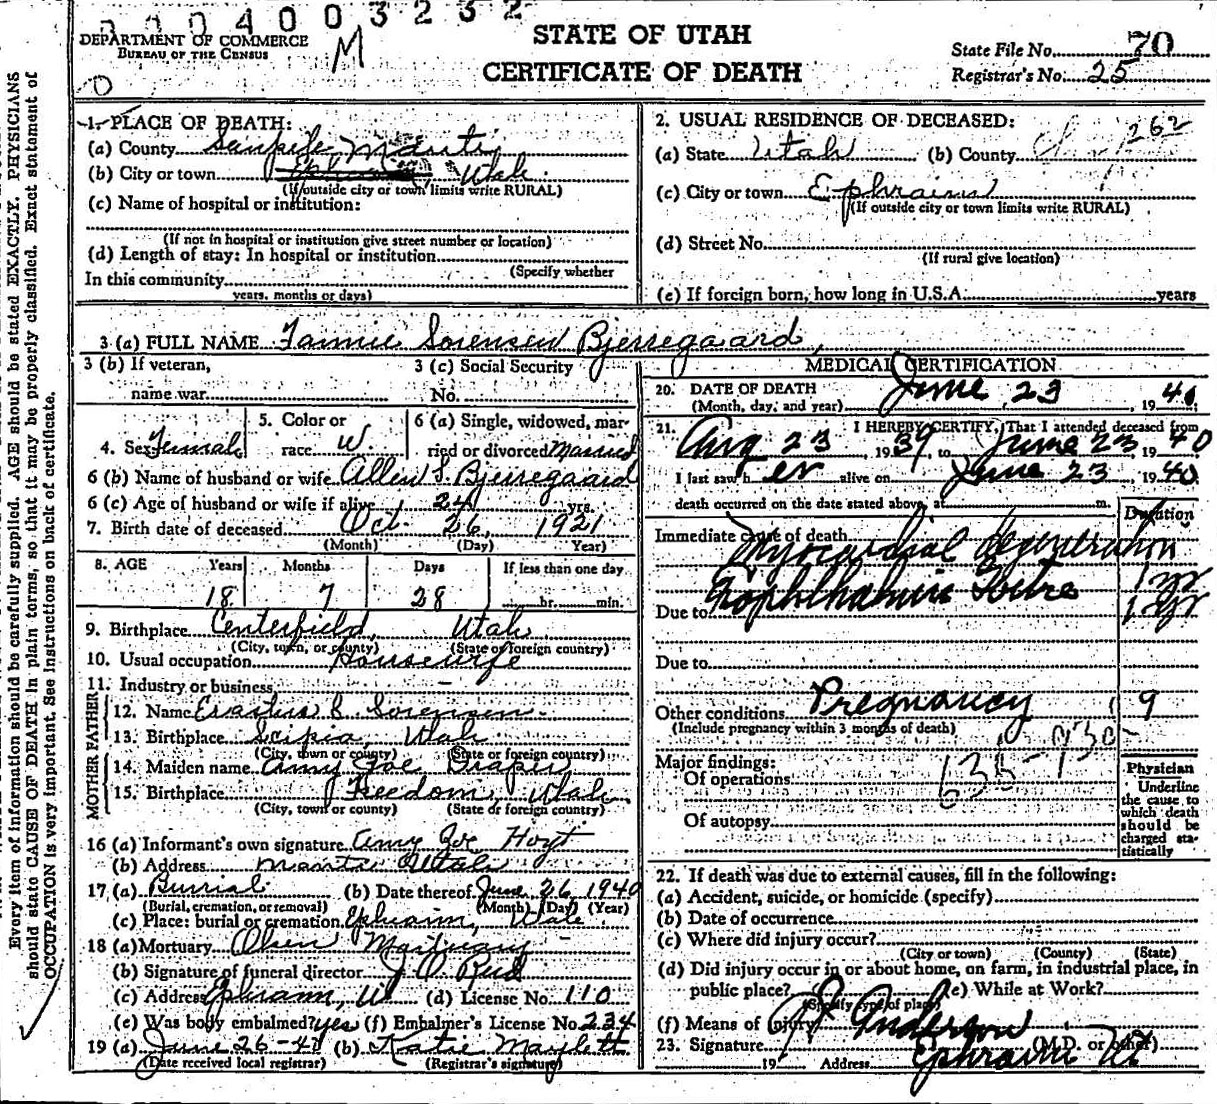 0004003232
DEPARTMENT OF COMMERCE
BUREAU OF THE CENSUS
M
STATE OF UTAH
CERTIFICATE OF DEATH
State File No. 70
Registrar's No. 25
Every item of information should be carefully supplied. AGE should be stated EXACTLY. PHYSICIANS
should state CAUSE OF DEATH in plain terms, so that it may be properly classified. Exact statement of
OCCUPATION is very important. See instructions on back of certificate.
1. PLACE OF DEATH:
(a) County Sanpete Manti
(b) City or town Ephraim Utah
(If outside city or town limits write RURAL)
(c) Name of hospital or institution:
(If not in hospital or institution give street number or location)
(d) Length of stay: In hospital or institution
(Specify whether
In this community
years, months or days)
2. USUAL RESIDENCE OF DECEASED:
262
(a) State Utah (b) County
(c) City or town Ephraim
(If outside city or town limits write RURAL)
(d) Street No.
(If rural give location)
(e) If foreign born, how long in U.S.A. years
3 (a) FULL NAME Fannie Sorensen Bjerregaard
3 (b) If veteran,
name war
3 (c) Social Security
No.
4. Sex Female
5. Color or
race W.
6 (a) Single, widowed, mar-
ried or divorced Married
6 (b) Name of husband or wife Allen S. Bjerregaard
6 (c) Age of husband or wife if alive 24 yrs.
7. Birth date of deceased Oct. 26, 1921
(Month) (Day) Year)
8. AGE Years Months Days If less than one day
18 7 28 hr. min.
9. Birthplace Centerfield, Utah
(City, town, or county) (State or foreign country)
10. Usual occupation Housewife
11. Industry or business
FATHER
12. Name Erastus S. Sorensen
13. Birthplace Scipio, Utah
(City, town or county) (State or foreign country)
MOTHER
14. Maiden name Amy Zoe Draper
15. Birthplace Freedom, Utah
(City, town or county) (State or foreign country)
16 (a) Informant's own signature Amy Zoe Hoyt
(b) Address Manti Utah
17 (a) Burial (b) Date thereof June 26, 1940
(Burial, cremation, or removal) (Month) (Day) (Year)
(c) Place: burial or cremation Ephraim, Utah
18 (a) Mortuary Olsen Mortuary
(b) Signature of funeral director
(c) Address Ephraim, U (d) License No. 110
(e) Was body embalmed? yes (f) Embalmer's License No. 234
19 (a) June 26-40 (b) Katie Maylett
(Date received local registrar) (Registrar's signature)
MEDICAL CERTIFICATION
20. DATE OF DEATH
(Month, day, and year) June 23, 1940
21. I HEREBY CERTIFY, That I attended deceased from
Aug 23 1939, to June 23 1940
I last saw her alive on June 23, 1940
death occurred on the date stated above, at m.
Duration
Immediate cause of death Myocardial degeneration
1 yr
Due to Exophthalmic Goitre 1 yr
Due to
Other conditions Pregnancy 9
(Include pregnancy within 3 months of death)
Major findings:
Of operations
Of autopsy
Physician
Underline
the cause to
which death
should be
charged sta-
tistically
22. If death was due to external causes, fill in the following:
(a) Accident, suicide, or homicide (specify)
(b) Date of occurrence
(c) Where did injury occur?
(City or town) (County) (State)
(d) Did injury occur in or about home, on farm, in industrial place, in
public place? (e) While at Work?
(Specify type of place)
(f) Means of injury
23. Signature Anderson (M.D. or other)
19 Address Ephraim Ut